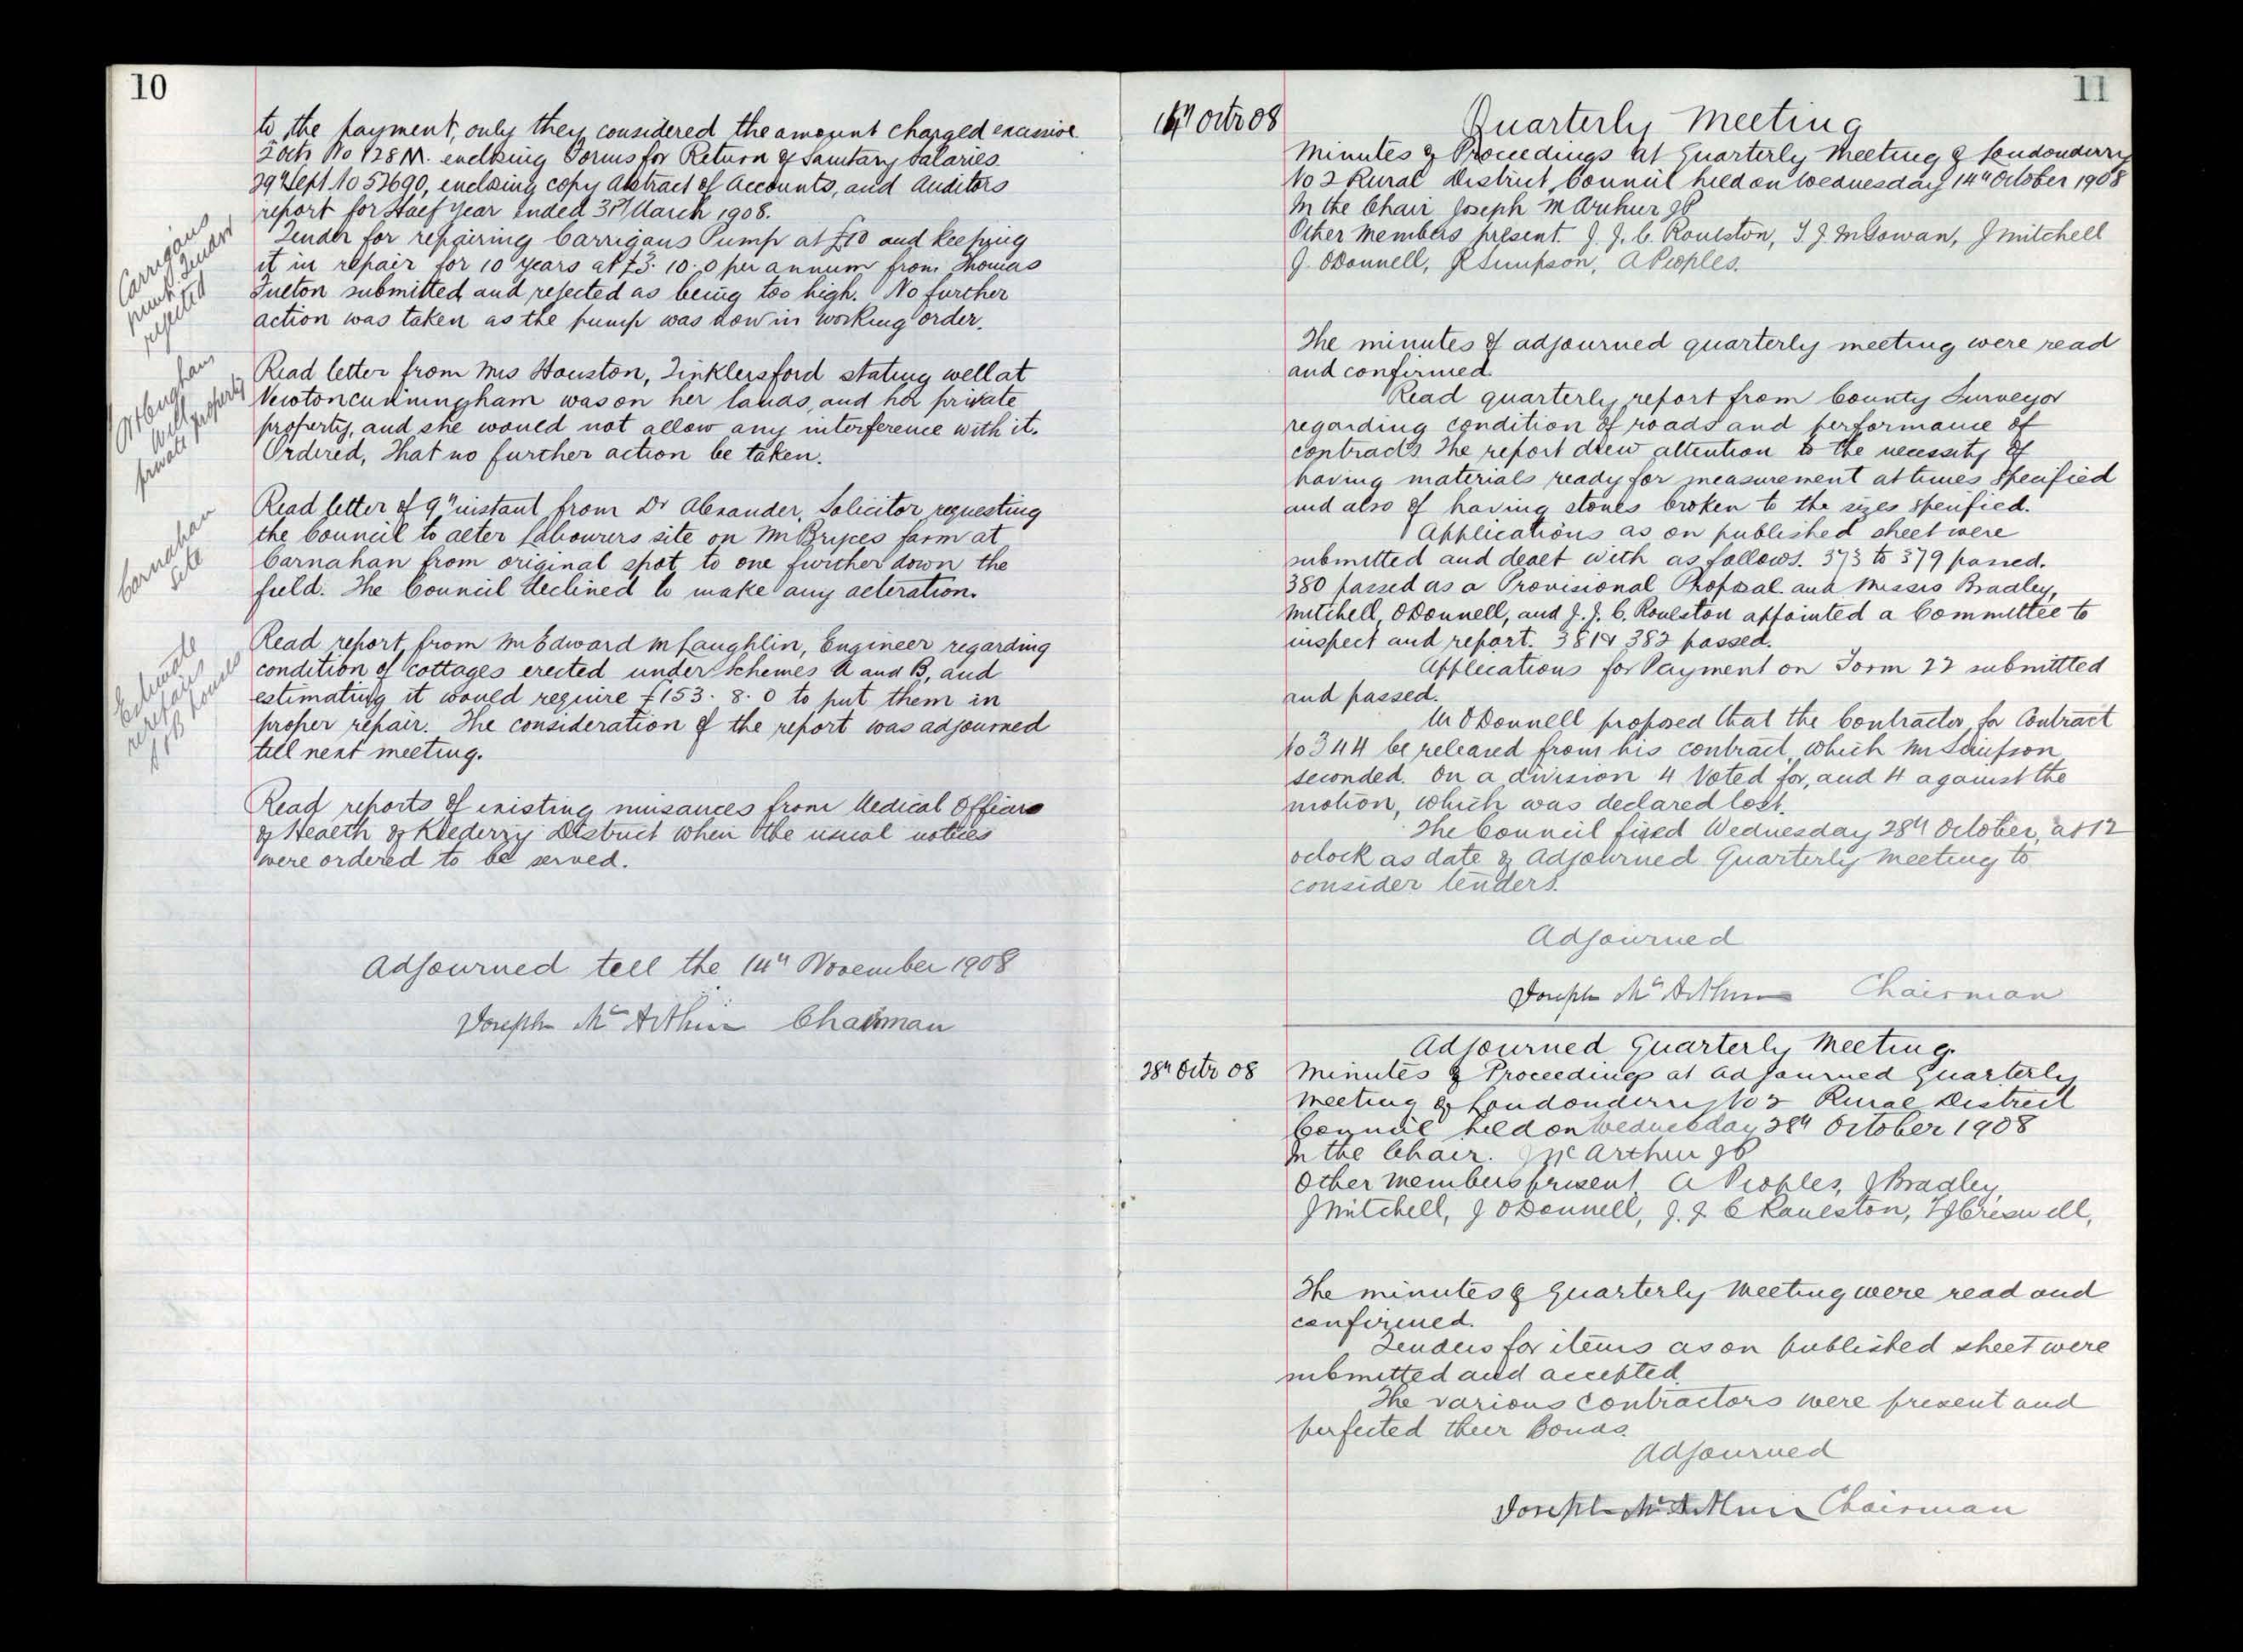 10
to the payment, only they considered the amount charged excessive
2 Octr No 128 M. enclosing Forms for Return of Sanitary Salaries
29th Sept. No 52690, enclosing copy Abstract of Accounts, and Auditors
report for Half Year ended 31st March 1908.
Carrigans
pump. Tender
rejected
Tender for repairing Carrigans Pump at £10 and keeping
it in repair for 10 years at £3. 10. 0 per annum from Thomas
Fulton submitted and rejected as being too high. No further
action was taken as the pump was now in working order.
well
private property
Read letter from Mrs Houston, Tinklersford stating well at
Newtoncunningham was on her lands, and her private
property, and she would not allow any interference with it.
Ordered, That no further action be taken.
Carnahan
site
Read letter of 9th instant from Dr Alexander, Solicitor requesting
the Council to alter Labourers site on Mr Bryces farm at
Carnahan from original spot to one further down the
field. The Council declined to make any alteration.
Estimate
repairs
A & B houses
Read report from Mr Edward McLaughlin, Engineer regarding
condition of cottages erected under Schemes A and B, and
estimating it would require £153. 8. 0 to put them in
proper repair. The consideration of the report was adjourned
till next meeting.
Read reports of existing nuisances from Medical Officers
of Health of Killderry District when the usual notices
were ordered to be served.
Adjourned till the 14th November 1908
Joseph McArthur Chairman
11
14th Octr 08
Quarterly Meeting
Minutes of Proceedings at Quarterly Meeting of Londonderry
No 2 Rural District Council held on Wednesday 14th October 1908
In the Chair Joseph McArthur JP
Other Members present. J. J. C. Roulston, T J McGowan, J Mitchell
J. ODonnell, R Simpson, A Peoples.
The minutes of adjourned quarterly meeting were read
and confirmed.
Read quarterly report from County Surveyor
regarding condition of roads and performance of
contracts. The report drew attention to the necessity of
having materials ready for measurement at times specified
and also of having stones broken to the sizes specified.
Applications as on published sheet were
submitted and dealt with as follows. 373 to 379 passed.
380 passed as a Provisional Proposal and Messrs Bradley,
Mitchell, ODonnell, and J. J. C. Roulston appointed a Committee to
inspect and report. 381 & 382 passed.
Applications for Payment on Form 22 submitted
and passed.
Mr ODonnell proposed that the Contractor for Contract
No 344 be released from his contract, which Mr Simpson
seconded. On a division 4 Voted for, and 4 against the
motion, which was declared lost.
The Council fixed Wednesday 28th October, at 12
oclock as date of Adjourned Quarterly Meeting to
consider tenders.
Adjourned
Joseph McArthur Chairman
Adjourned Quarterly Meeting.
28th Octr 08
Minutes of Proceedings at adjourned Quarterly
Meeting of Londonderry No 2 Rural District
Council held on Wednesday 28th October 1908
In the Chair. J McArthur JP
Other Members present A Peoples, J Bradley,
J Mitchell, J ODonnell, J. J. C Roulston, T J Criswell,
The minutes of Quarterly Meeting were read and
confirmed.
Tenders for items as on published sheet were
submitted and accepted.
The various Contractors were present and
perfected their Bonds.
Adjourned
Joseph McArthur Chairman